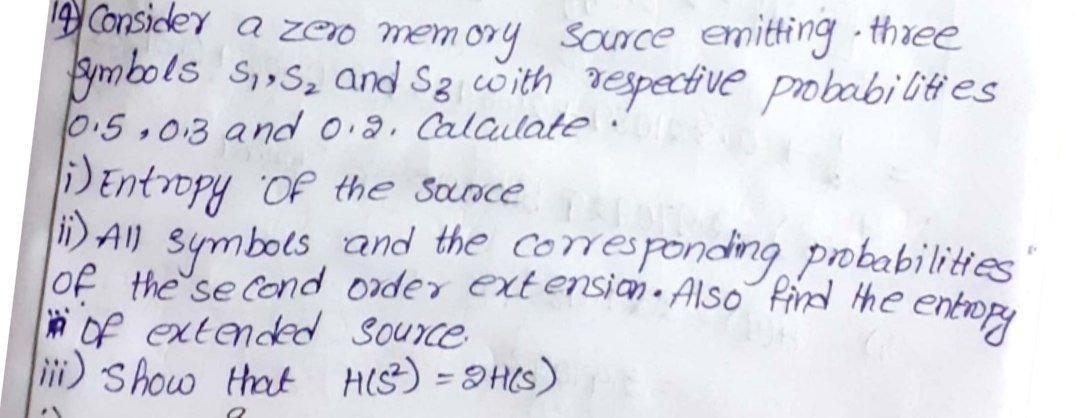 14) Consider a zero memory source emitting three
symbols S₁, S₂ and S₃ with respective probabilities
0.5, 0.3 and 0.2. Calculate
i) Entropy of the source
ii) All symbols and the corresponding probabilities
of the second order extension. Also find the entropy
of extended source.
iii) Show that H(S²) = 2H(S)